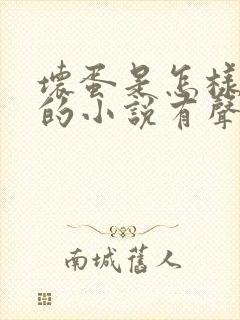 壞蛋是怎樣
的小說有聲
南城舊人